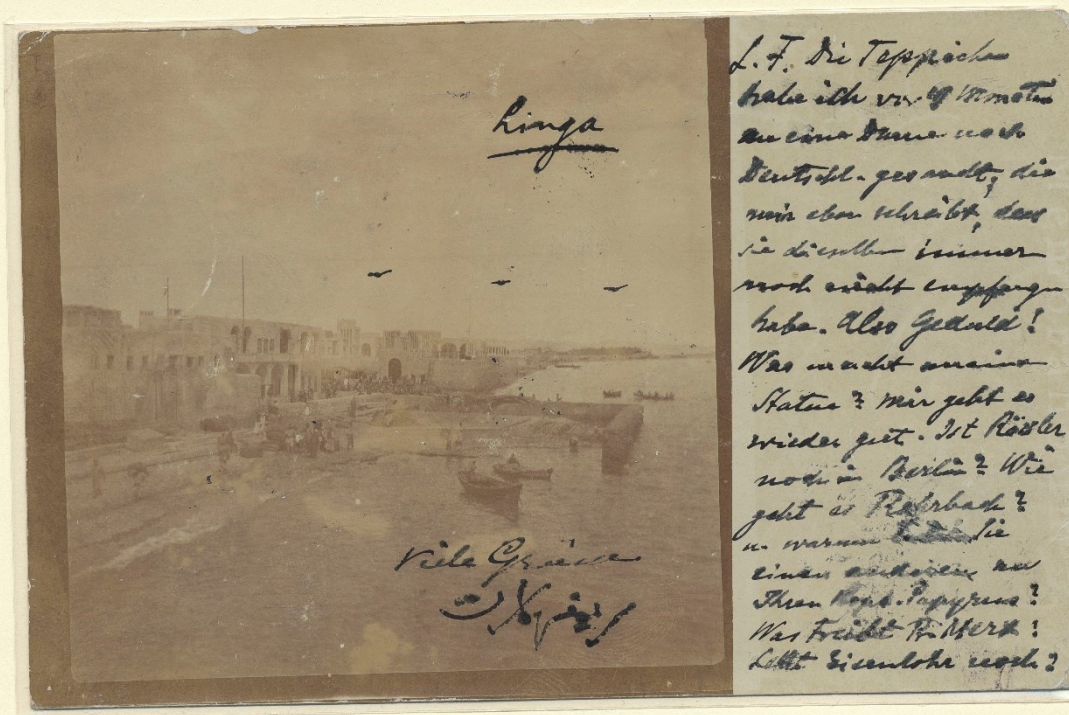 Linga
Viele Grüsse
L. F. Die Teppiche
habe ich vor 4 Monaten
an eine Dame nach
Deutschl. gesandt, die
mir eben schreibt, dass
sie dieselben immer
noch nicht empfangen
habe. Also Geduld!
Was macht meine
Statue? Mir geht es
wieder gut. Ist Rösler
noch in Berlin? Wie
geht es Rohrbach?
u. warum Sie
einen anderen an
Ihren Kopt. Papyrus?
Was treibt Pr. Merx?
Lebt Eisenlohr noch?